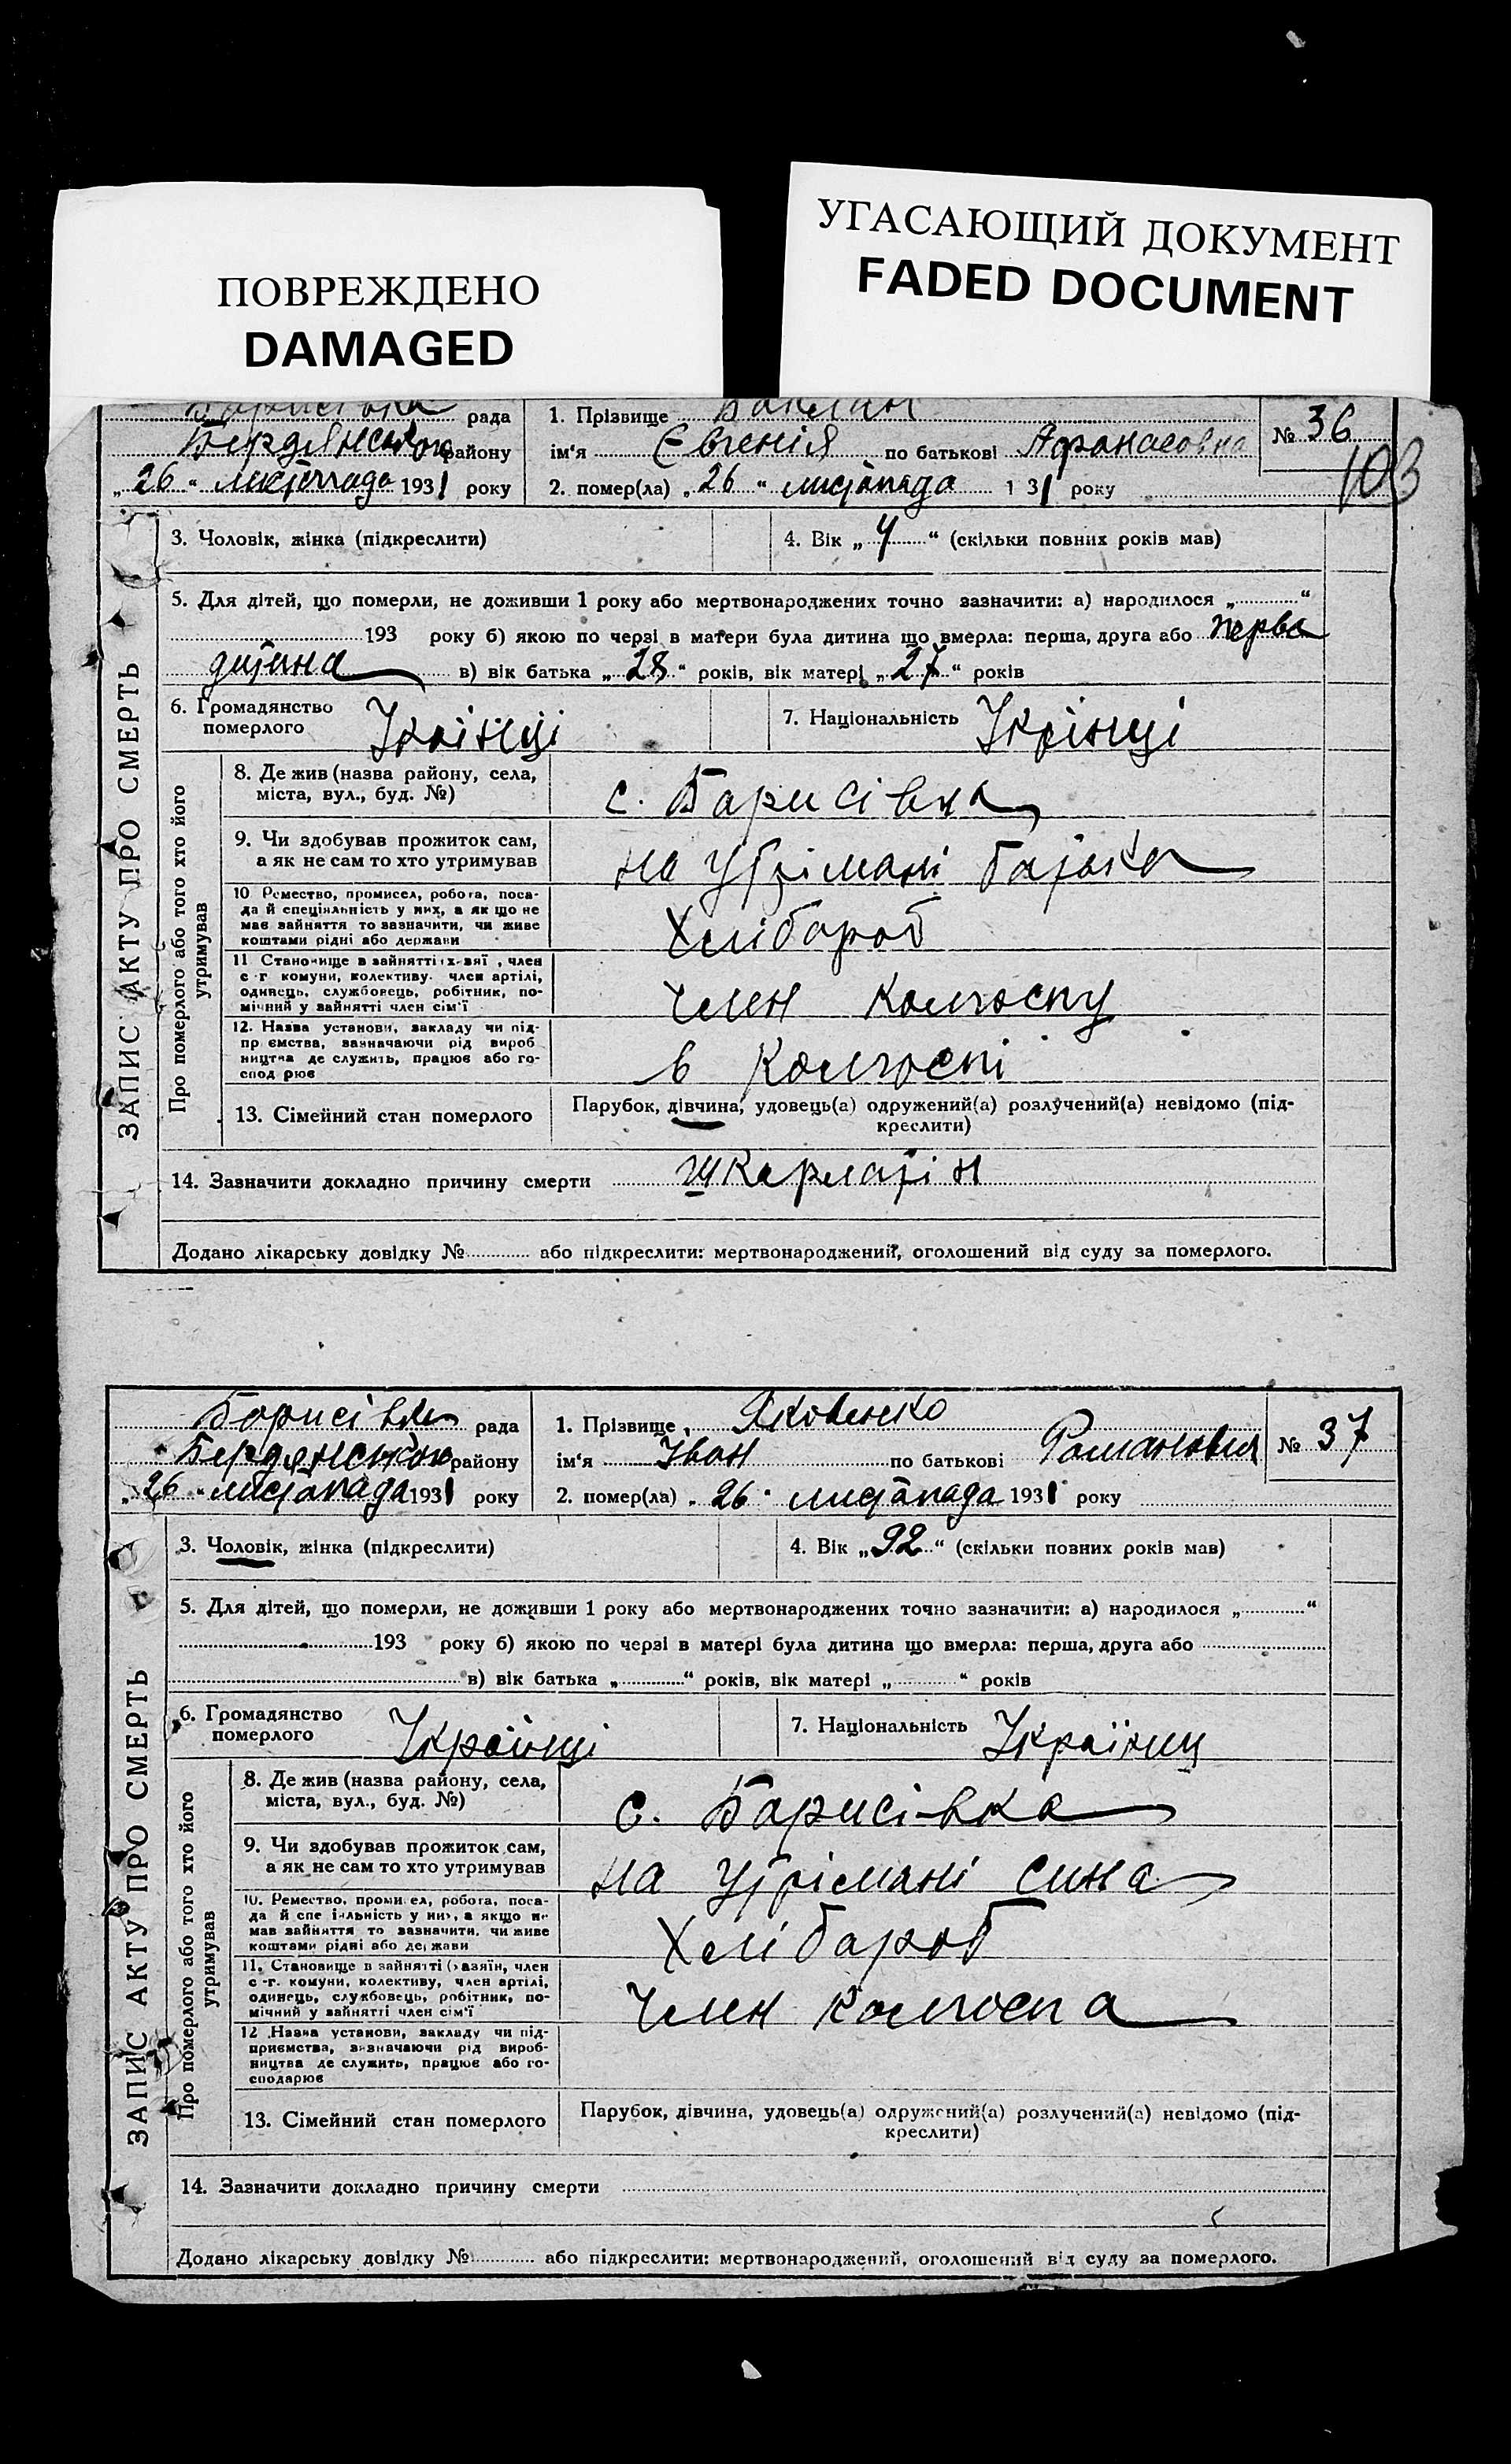 ПОВРЕЖДЕНО
DAMAGED
УГАСАЮЩИЙ ДОКУМЕНТ
FADED DOCUMENT
рада
Бердянського району
„26“ листопада 1931 року
1. Прізвище Баклан
ім'я Євгенія по батькові Афанасовна
2. помер(ла) „26“ листопада 1 31 року
№ 36
103
3. Чоловік, жінка (підкреслити)
4. Вік „4“ (скільки повних років мав)
5. Для дітей, що померли, не доживши 1 року або мертвонароджених точно зазначити: а) народилося „ “
193 року б) якою по черзі в матери була дитина що вмерла: перша, друга або перва
дитина в) вік батька „28“ років, вік матері „27“ років
6. Громадянство
померлого Укрінці
7. Національність Укрінці
ЗАПИС АКТУ ПРО СМЕРТЬ
Про померлого або того хто його
утримував
8. Де жив (назва району, села,
міста, вул., буд. №)
с. Барисівка
9. Чи здобував прожиток сам,
а як не сам то хто утримував
на утрімані батька
10 Ремество, промисел, робота, поса-
да й спеціяльність у них, а як що не
має зайняття то зазначити, чи живе
коштами рідні або держави
Хлібароб
11 Становище в зайнятті , член
с-г комуни, колективу, член артілі,
одинець, службовець, робітник, по-
мічний у зайнятті член сім'ї
член колгоспу
12. Назва установи, закладу чи під-
пр ємства, зазначаючи рід вироб
ництва де служить, працює або го-
спод рює
в колгоспі
13. Сімейний стан померлого
Парубок, дівчина, удовець(а) одружений(а) розлучений(а) невідомо (під-
креслити)
14. Зазначити докладно причину смерти шкарлатін
Додано лікарську довідку № або підкреслити: мертвонароджений, оголошений від суду за померлого.
Борисівка рада
Бердянського району
„26“ листопада 1931 року
1. Прізвище Яковенко
ім'я Іван по батькові Романович
2. помер(ла) „26“ листопада 1931 року
№ 37
3. Чоловік, жінка (підкреслити)
4. Вік „92“ (скільки повних років мав)
5. Для дітей, що померли, не доживши 1 року або мертвонароджених точно зазначити: а) народилося „ “
193 року б) якою по черзі в матері була дитина що вмерла: перша, друга або
в) вік батька „ “ років, вік матері „ “ років
6. Громадянство
померлого Українці
7. Національність Українец
ЗАПИС АКТУ ПРО СМЕРТЬ
Про померлого або того хто його
утримував
8. Де жив (назва району, села,
міста, вул., буд. №)
с. Барисівка
9. Чи здобував прожиток сам,
а як не сам то хто утримував
на утрімані сина
10. Ремество, промисел, робота, поса-
да й спе іяльність у них, а якщо не
мав зайняття то зазначити, чи живе
коштами рідні або держави
Хлібароб
11. Становище в зайнятті (хазяїн, член
с-г. комуни, колективу, член артілі,
одинець, службовець, робітник, по-
мічний у зайнятті член сім'ї
член колгоспа
12 Назва установи, закладу чи під-
приємства, зазначаючи рід вироб-
ництва де служить, працює або го-
сподарює
13. Сімейний стан померлого
Парубок, дівчина, удовець(а) одружений(а) розлучений(а) невідомо (під-
креслити)
14. Зазначити докладно причину смерти
Додано лікарську довідку № або підкреслити: мертвонароджений, оголошений від суду за померлого.